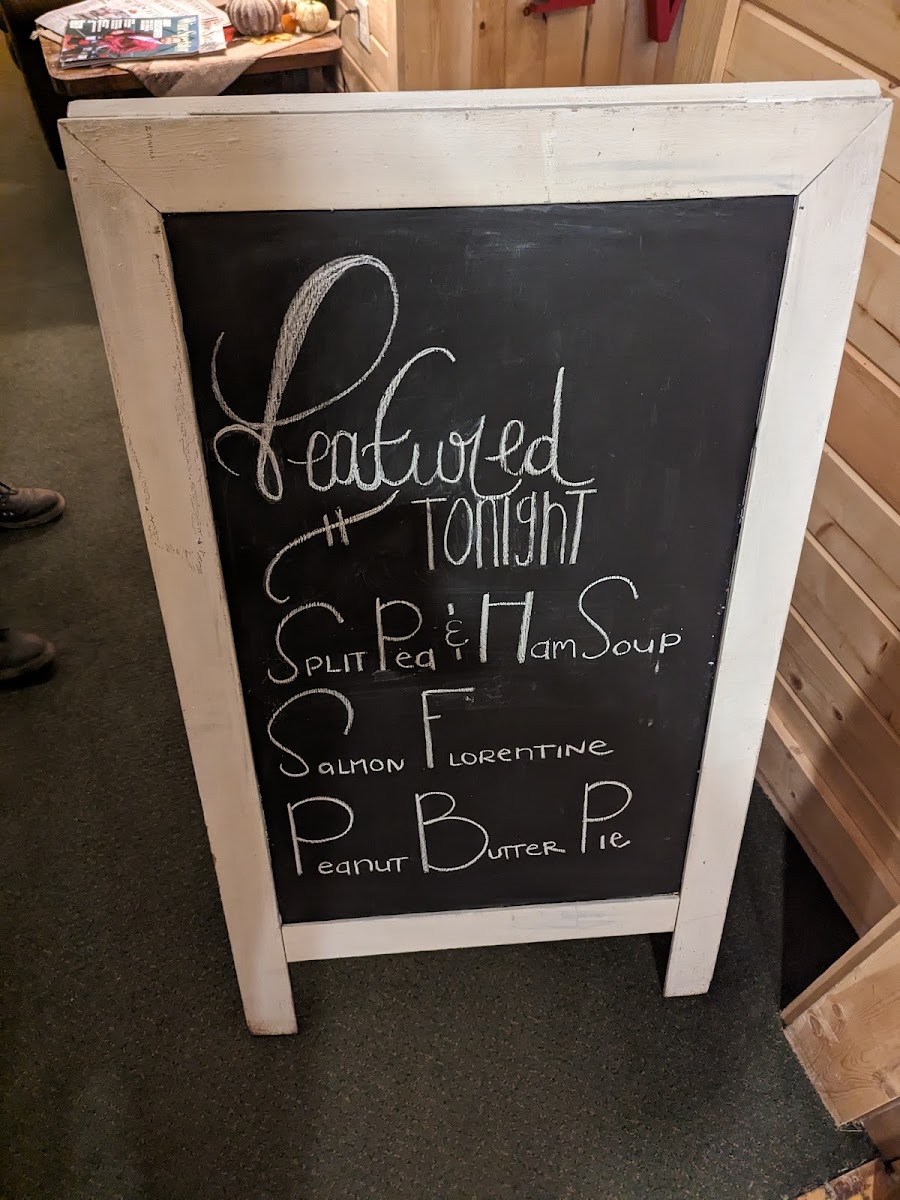 Featured
Tonight
Split Pea & Ham Soup
Salmon Florentine
Peanut Butter Pie